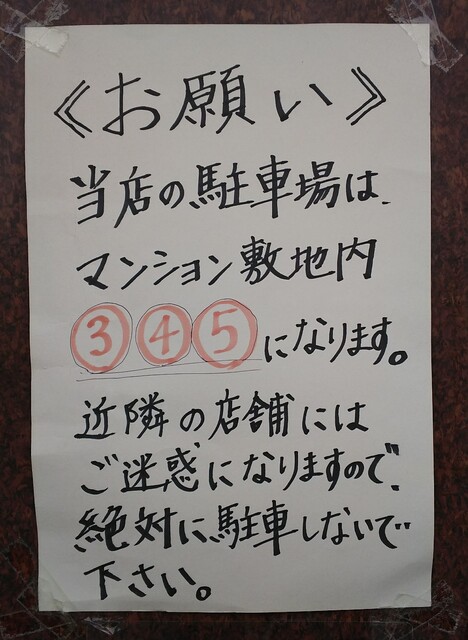 《お願い》
当店の駐車場は、
マンション敷地内
③④⑤になります。
近隣の店舗には
ご迷惑になりますので、
絶対に駐車しないで
下さい。